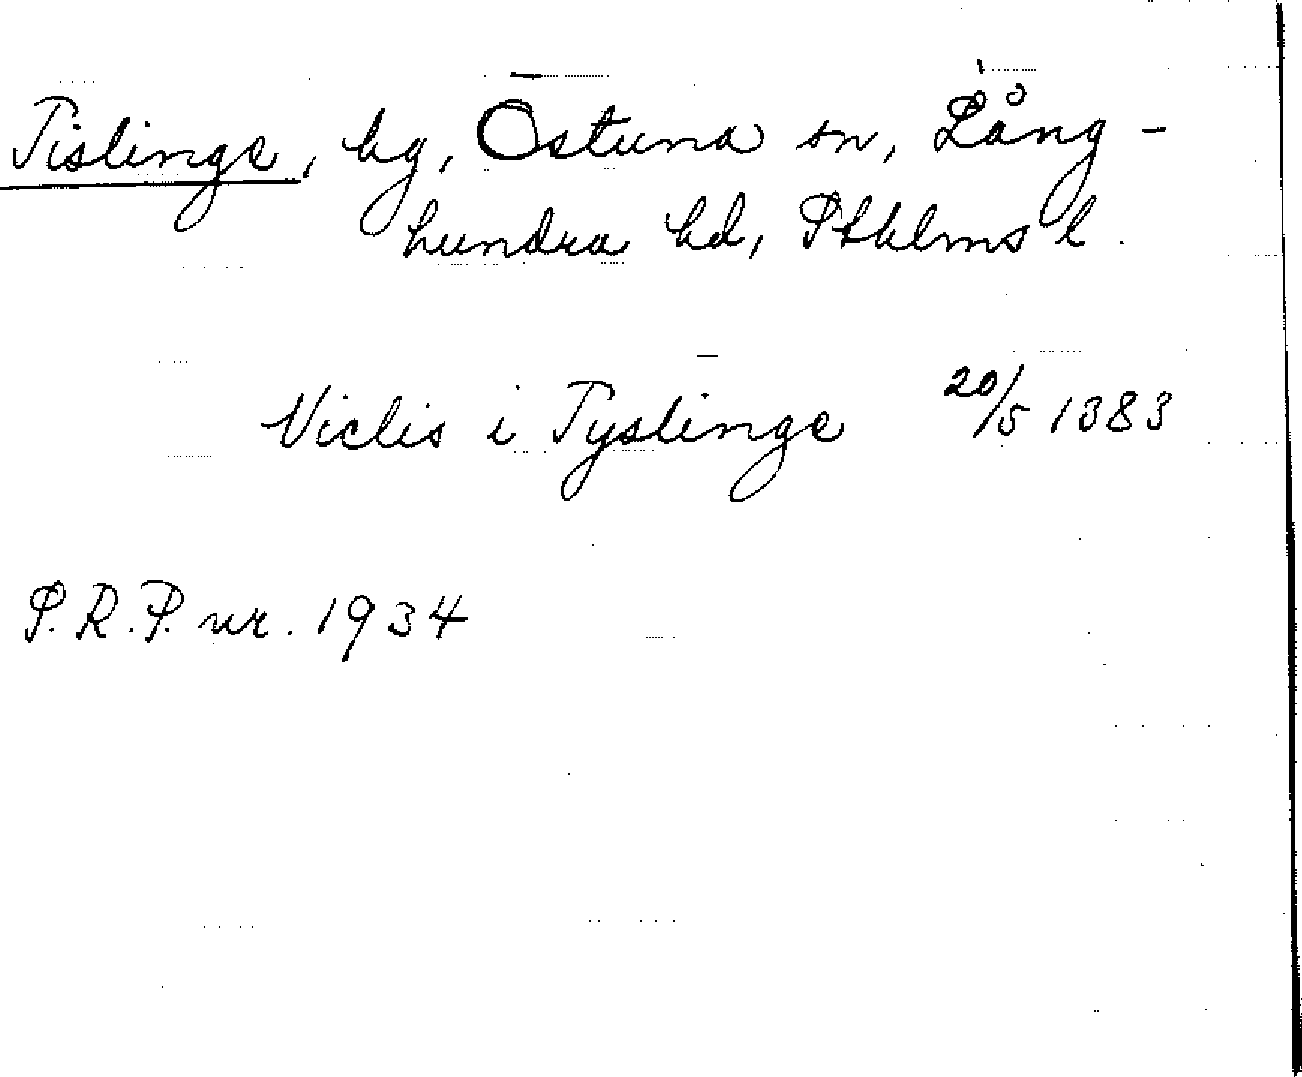 Tislinge, by, Östuna sn, Lång-
hundra hd, Sthlms l.
Niclis i Tyslinge 20/5 1383
S.R.P. nr. 1934